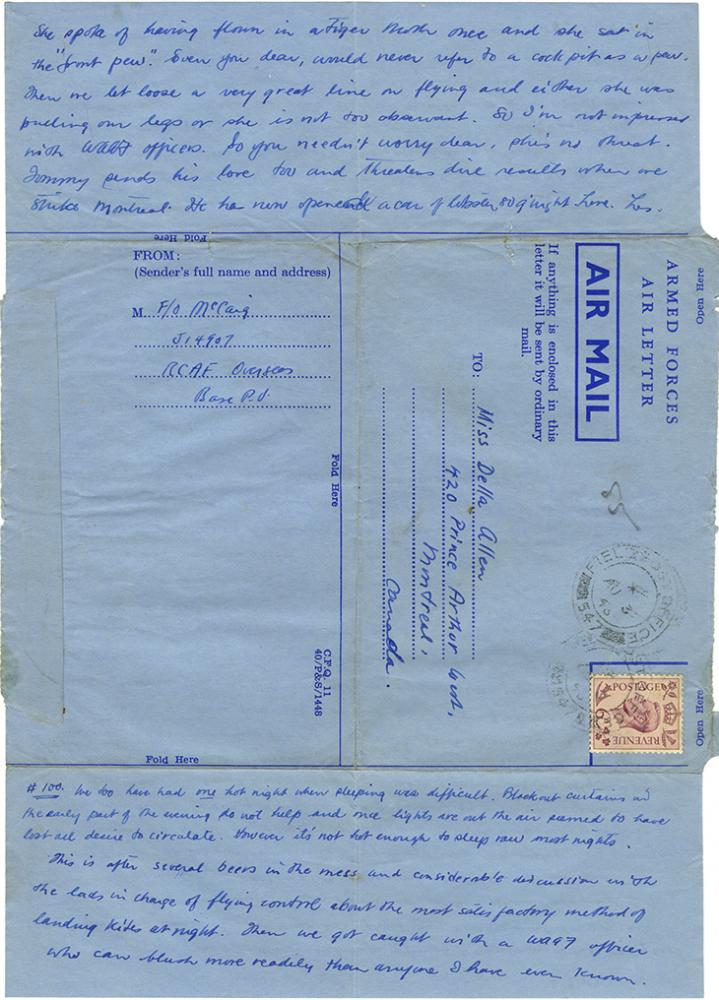 She spoke of having flown in a Tiger Moth once and she sat in
the "front pew". Even you dear, would never refer to a cockpit as a pew.
Then we let loose a very great line on flying and either she was
pulling our legs or she is not too observant. So I'm not impressed
with WAAF officers. So you needn't worry dear, she's no threat.
Tommy sends his love too and threatens dire results when we
strike Montreal. He has now opened a can of lobster so g'night here. Les.
Fold Here
FROM:
(Sender's full name and address)
M F/O McCaig
J14907
RCAF Overseas
Base P.O.
Fold Here
Open Here
ARMED FORCES
AIR LETTER
AIR MAIL
If anything is enclosed in this
letter it will be sent by ordinary
mail.
TO: Miss Della Allen
420 Prince Arthur West,
Montreal,
Canada.
FIELD POST OFFICE
AU 3
43
547
POSTAGE
REVENUE
6D
Open Here
C.F.Q. 11
40/P&S/1448
Fold Here
# 100. We too have had one hot night when sleeping was difficult. Blackout curtains in
the early part of the evening do not help and once lights are out the air seemed to have
lost all desire to circulate. However it's not hot enough to sleep raw most nights.
This is after several beers in the mess and considerable discussion with
the lads in charge of flying control about the most satisfactory method of
landing kites at night. Then we got caught with a WAAF officer
who can blush more readily than anyone I have ever known.